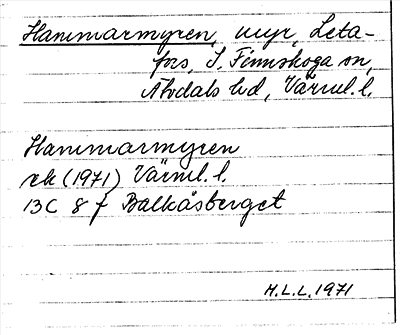 Hammarmyren, myr, Leta-
fors, S. Finnskoga sn,
Älvdals hd, Värml. l.
Hammarmyren
ek (1971) Värml. l.
13C 8 f Balkåsberget
H.L.L. 1971